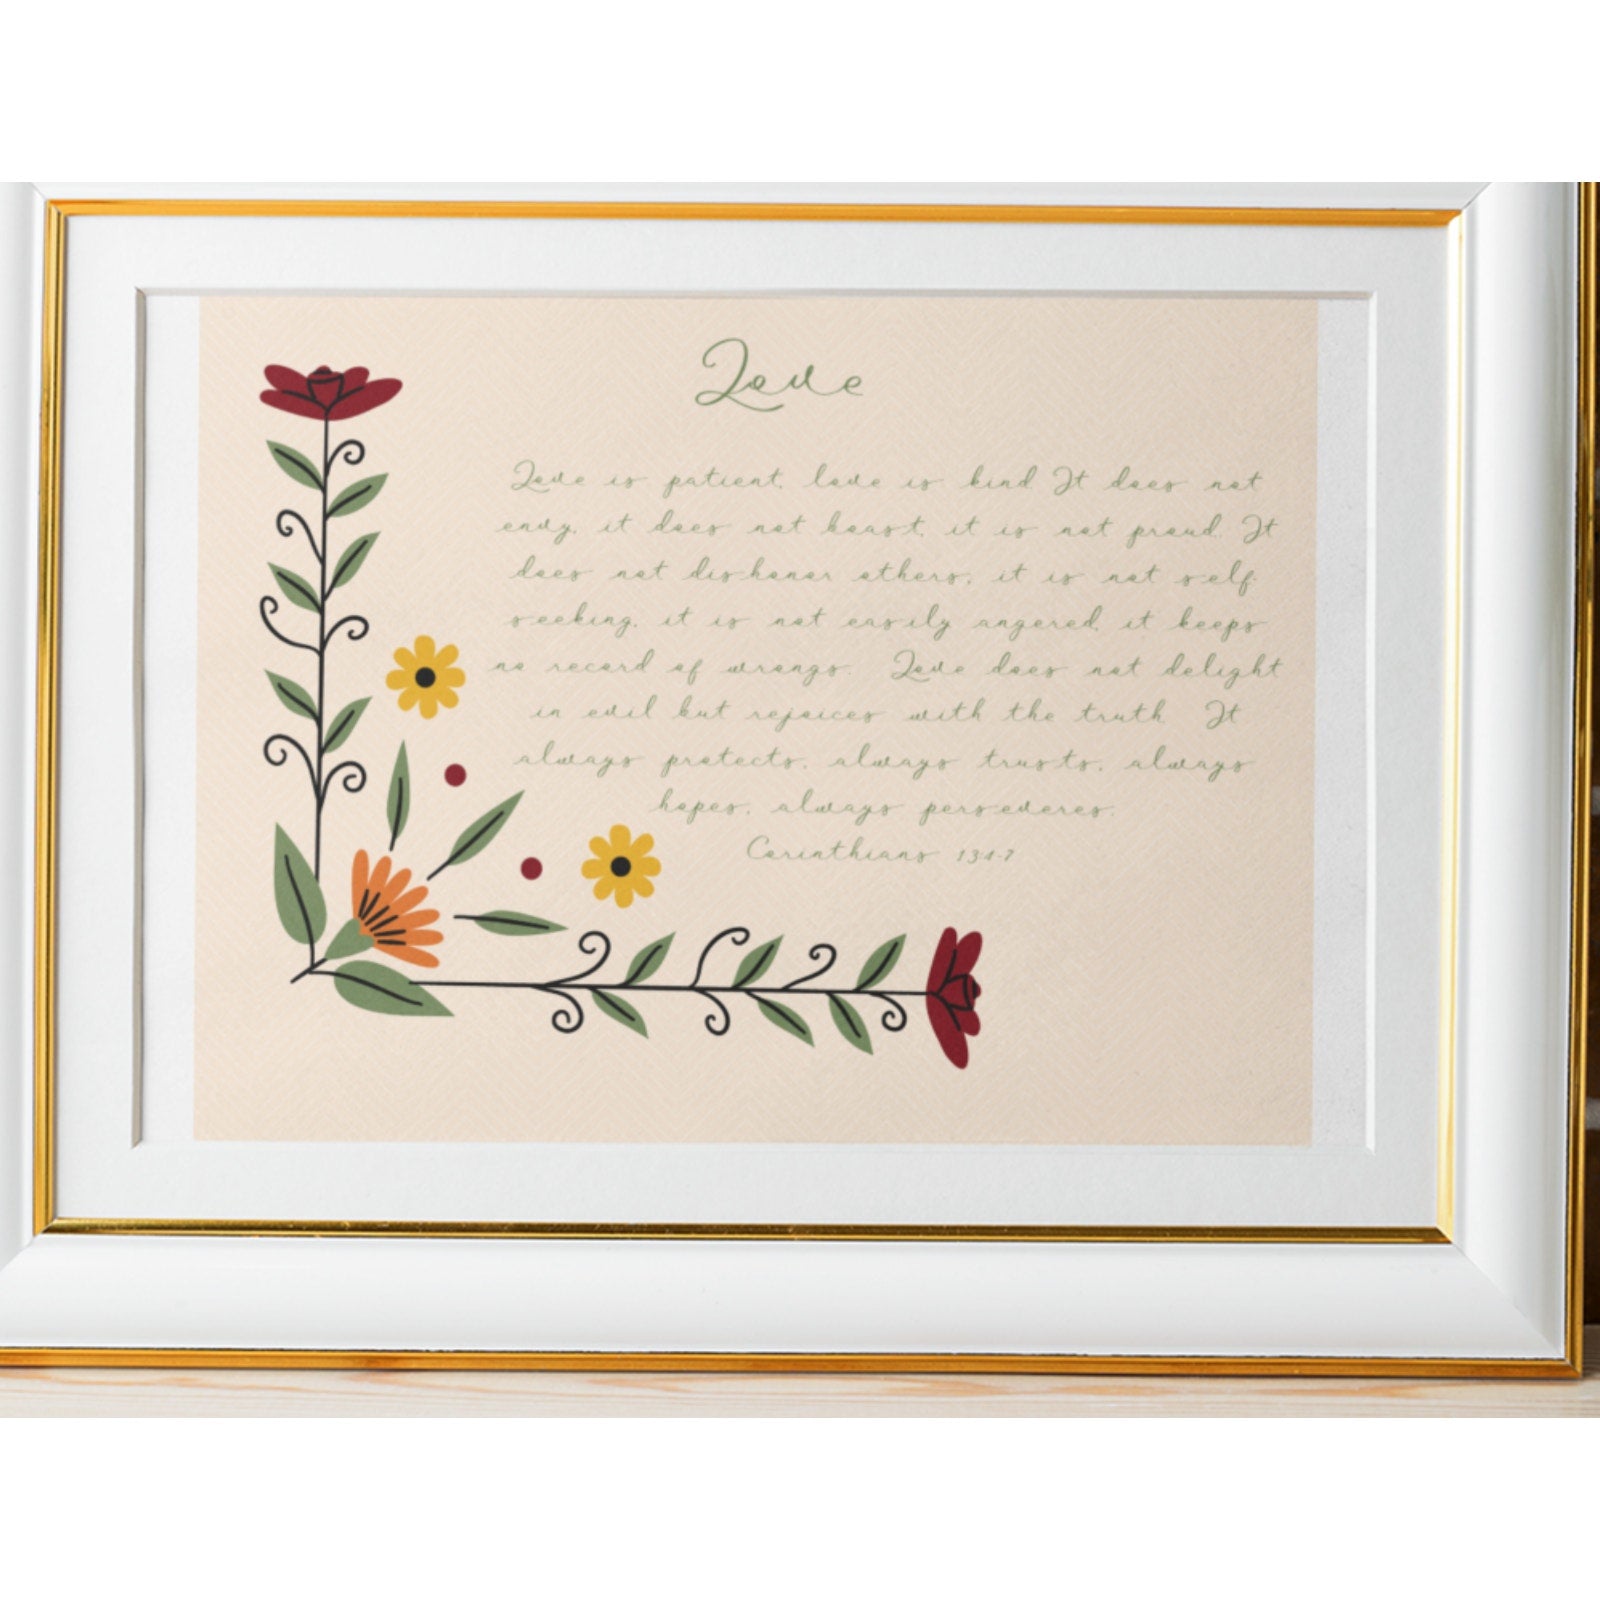 Love
Love is patient, love is kind. It does not
envy, it does not boast, it is not proud. It
does not dishonor others, it is not self-
seeking, it is not easily angered, it keeps
no record of wrongs. Love does not delight
in evil but rejoices with the truth. It
always protects, always trusts, always
hopes, always perseveres.
Corinthians 13:4-7